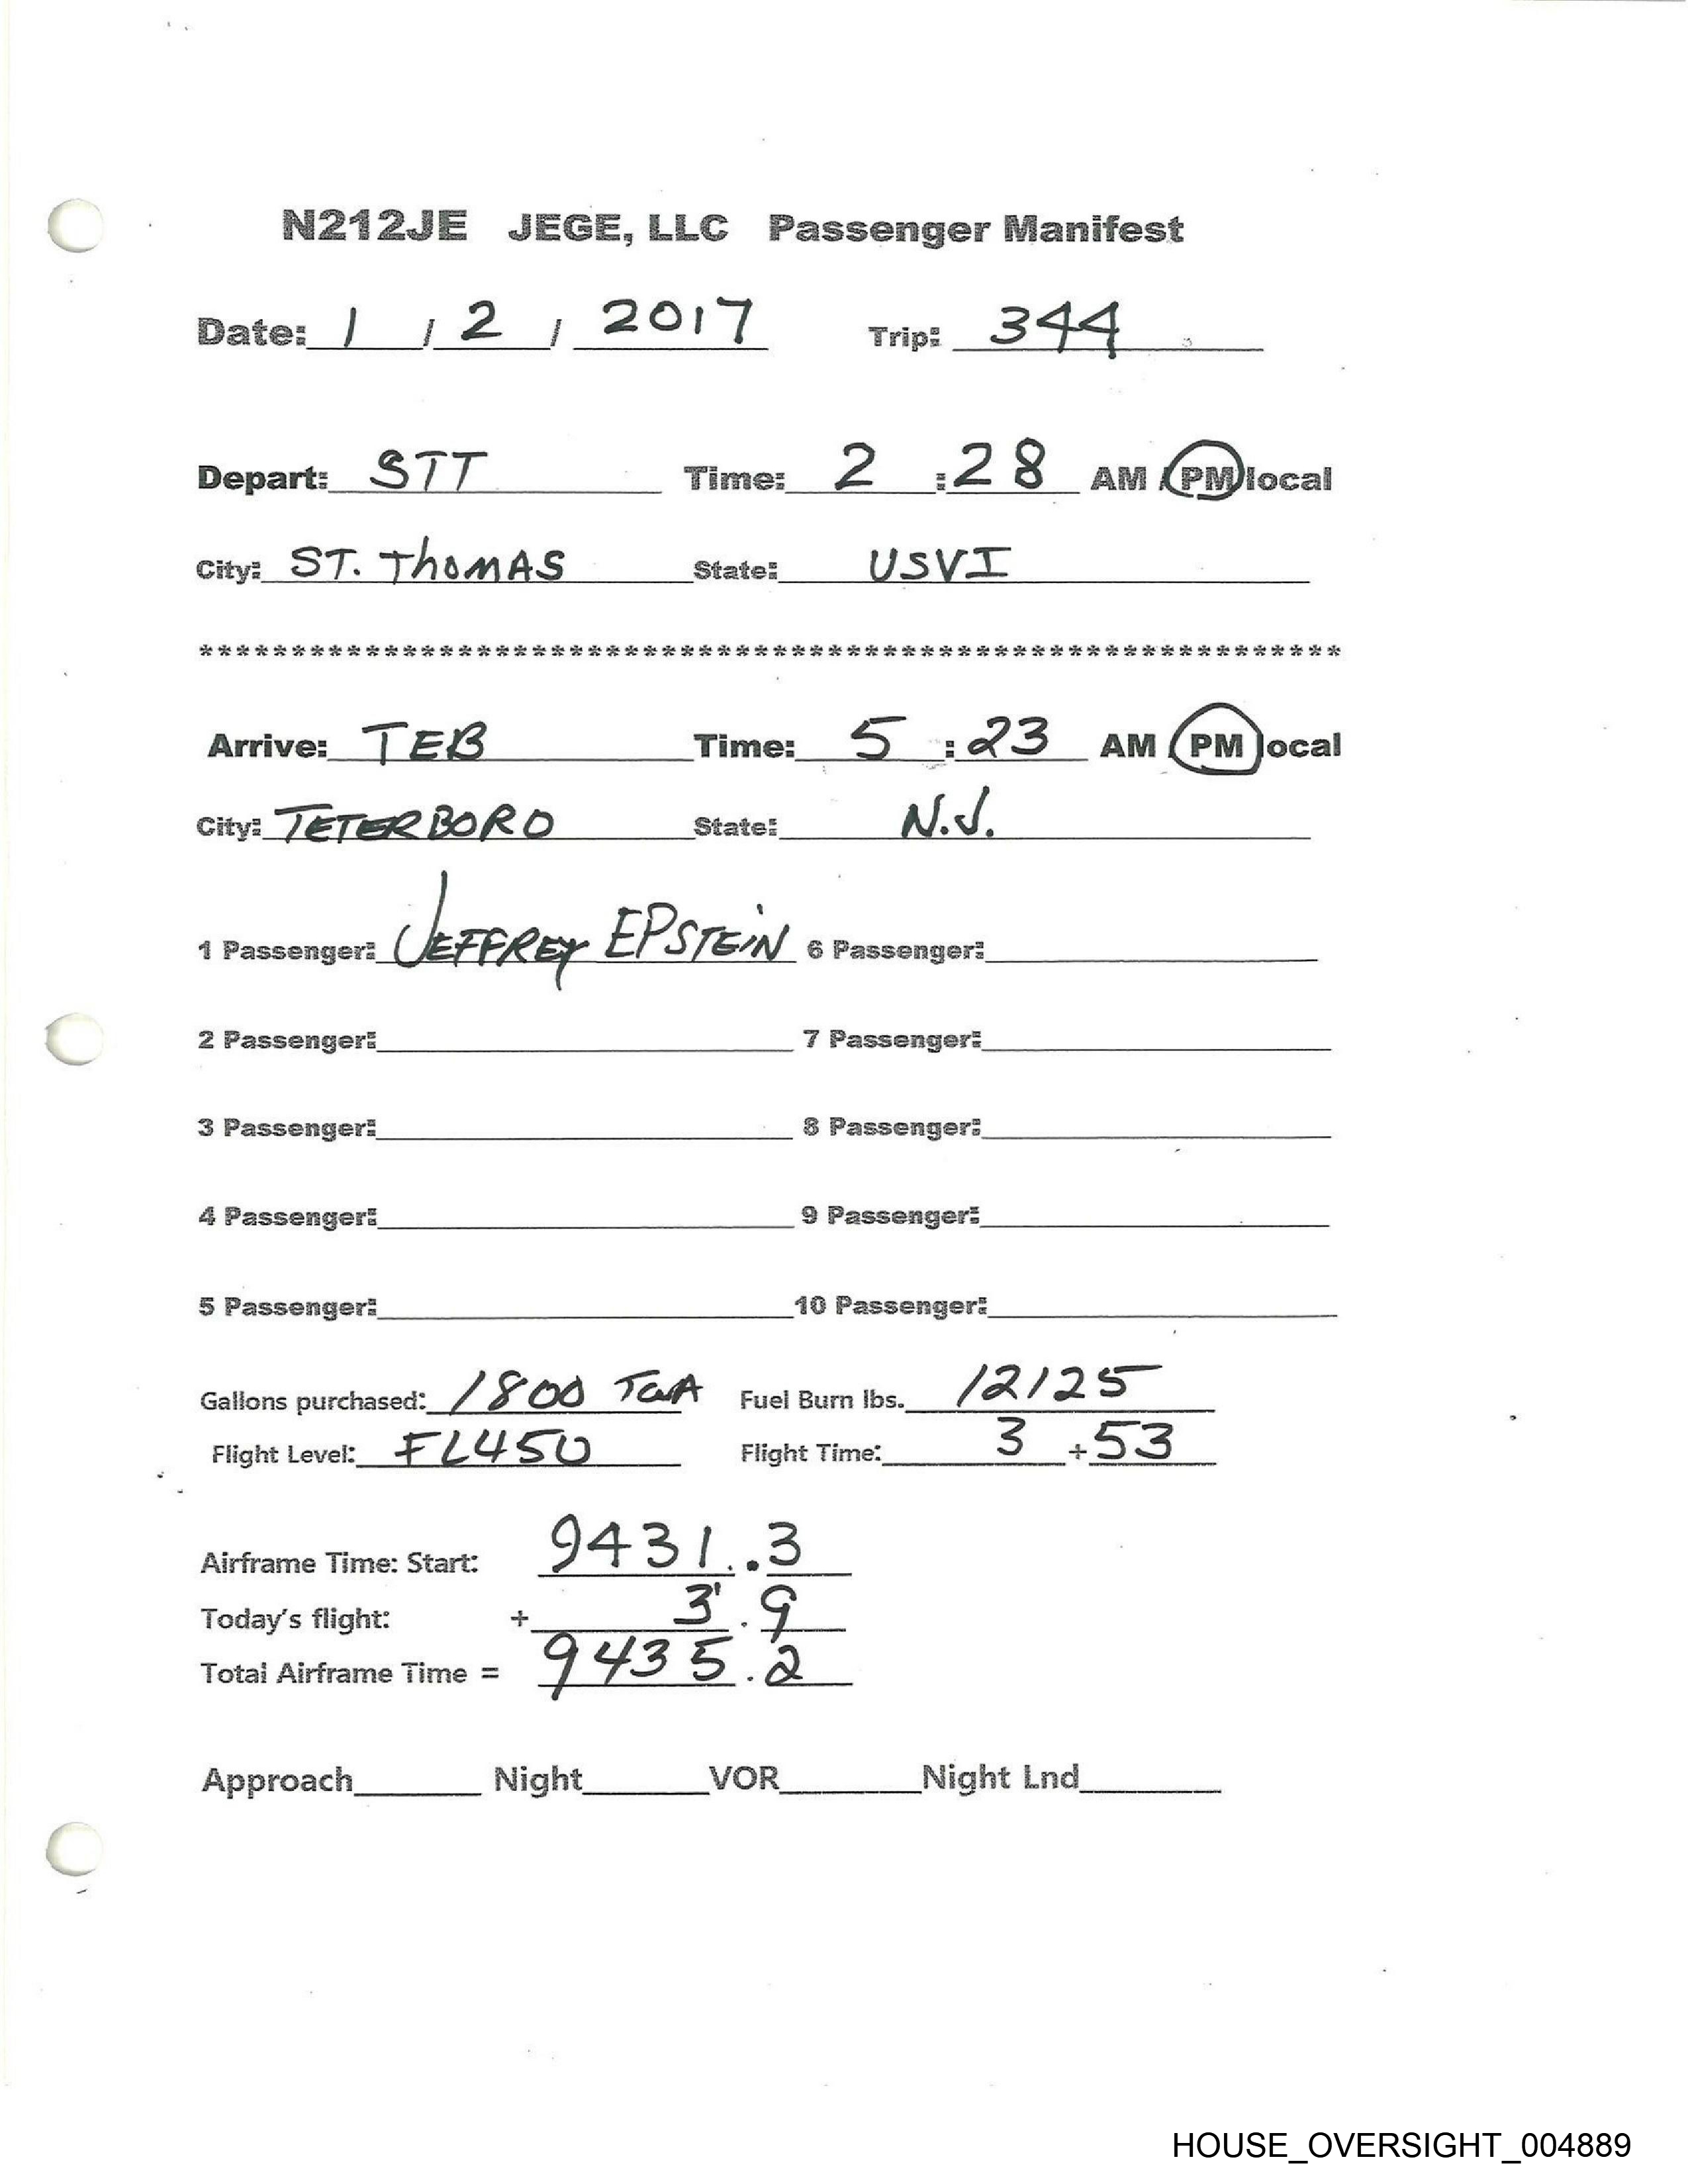 N212JE JEGE, LLC Passenger Manifest
Date: 1 / 2 / 2017 Trip: 344
Depart: STT Time: 2 : 28 AM / PM local
City: ST. ThOMAS State: USVI
**************************************************************
Arrive: TEB Time: 5 : 23 AM / PM local
City: TETERBORO State: N.J.
1 Passenger: JEFFREY EPSTEIN 6 Passenger:
2 Passenger: 7 Passenger:
3 Passenger: 8 Passenger:
4 Passenger: 9 Passenger:
5 Passenger: 10 Passenger:
Gallons purchased: 1800 Fuel Burn lbs. 12125
Flight Level: FL450 Flight Time: 3 + 53
Airframe Time: Start: 9431.3
Today's flight: + 3.9
Total Airframe Time = 9435.2
Approach Night VOR Night Lnd
HOUSE_OVERSIGHT_004889